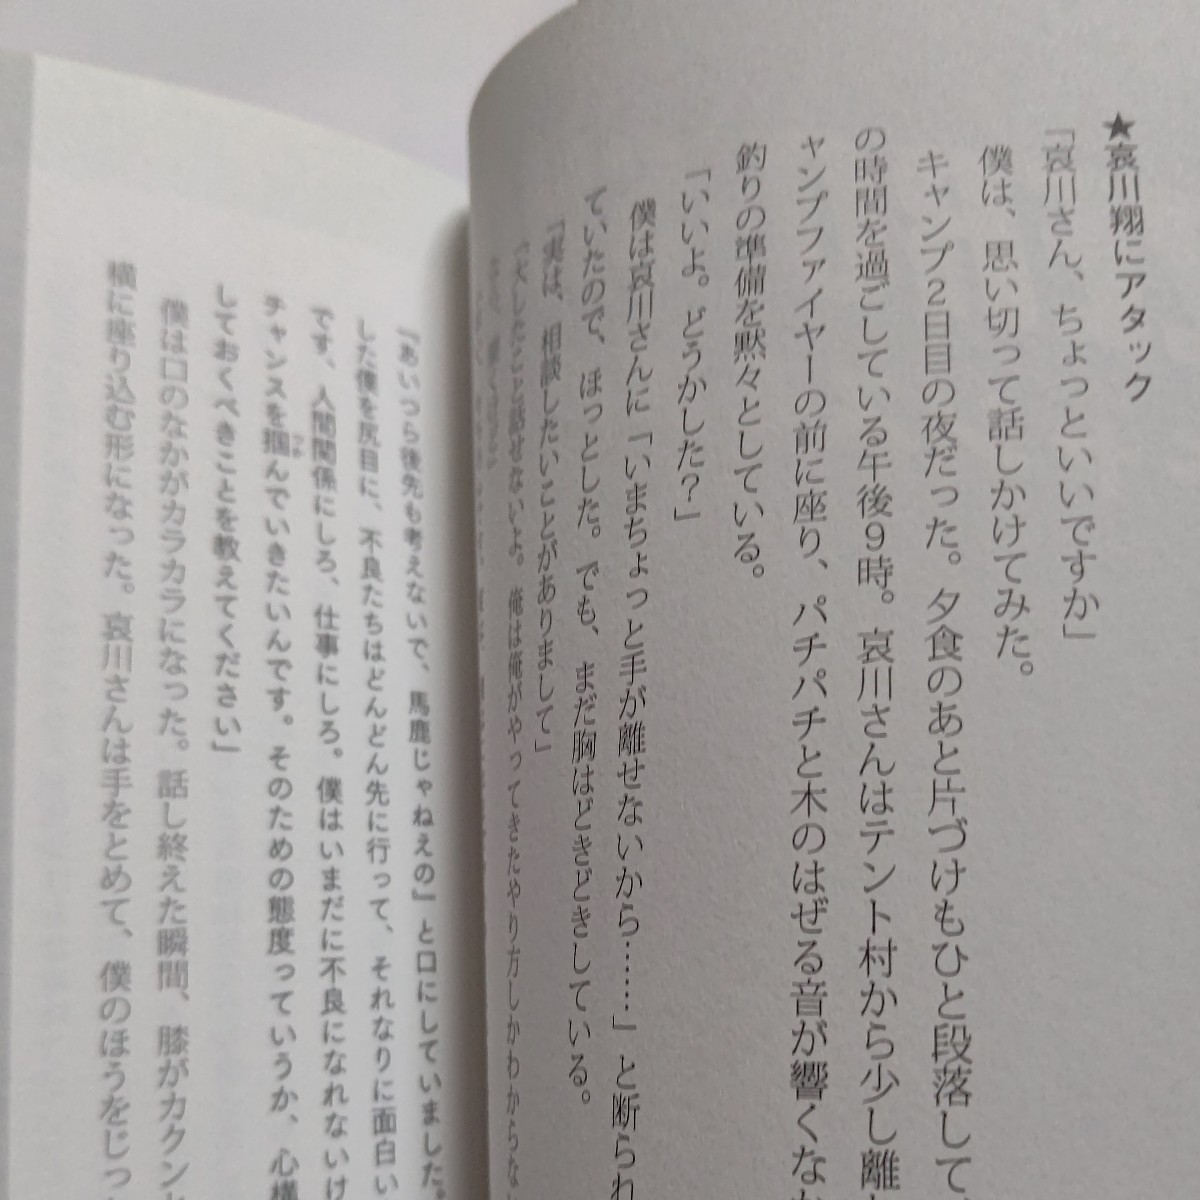 ★哀川翔にアタック
「哀川さん、ちょっといいですか」
僕は、思い切って話しかけてみた。
キャンプ2日目の夜だった。夕食のあと片づけもひと段落して、
の時間を過ごしている午後9時。哀川さんはテント村から少し離れ
ャンプファイヤーの前に座り、パチパチと木のはぜる音が響くなか
釣りの準備を黙々としている。
「いいよ。どうかした?」
僕は哀川さんに「いまちょっと手が離せないから……」と断られ
ていたので、ほっとした。でも、まだ胸はどきどきしている。
「実は、相談したいことがありまして」
「大したこと話せないよ。俺は俺がやってきたやり方しかわからな
「あいつら後先も考えないで、馬鹿じゃねえの」と口にしていました。
した僕を尻目に、不良たちはどんどん先に行って、それなりに面白い
です、人間関係にしろ、仕事にしろ。僕はいまだに不良になれないけ
チャンスを掴んでいきたいんです。そのための態度っていうか、心構
しておくべきことを教えてください」
僕は口のなかがカラカラになった。話し終えた瞬間、膝がカクンと
横に座り込む形になった。哀川さんは手をとめて、僕のほうをじっ